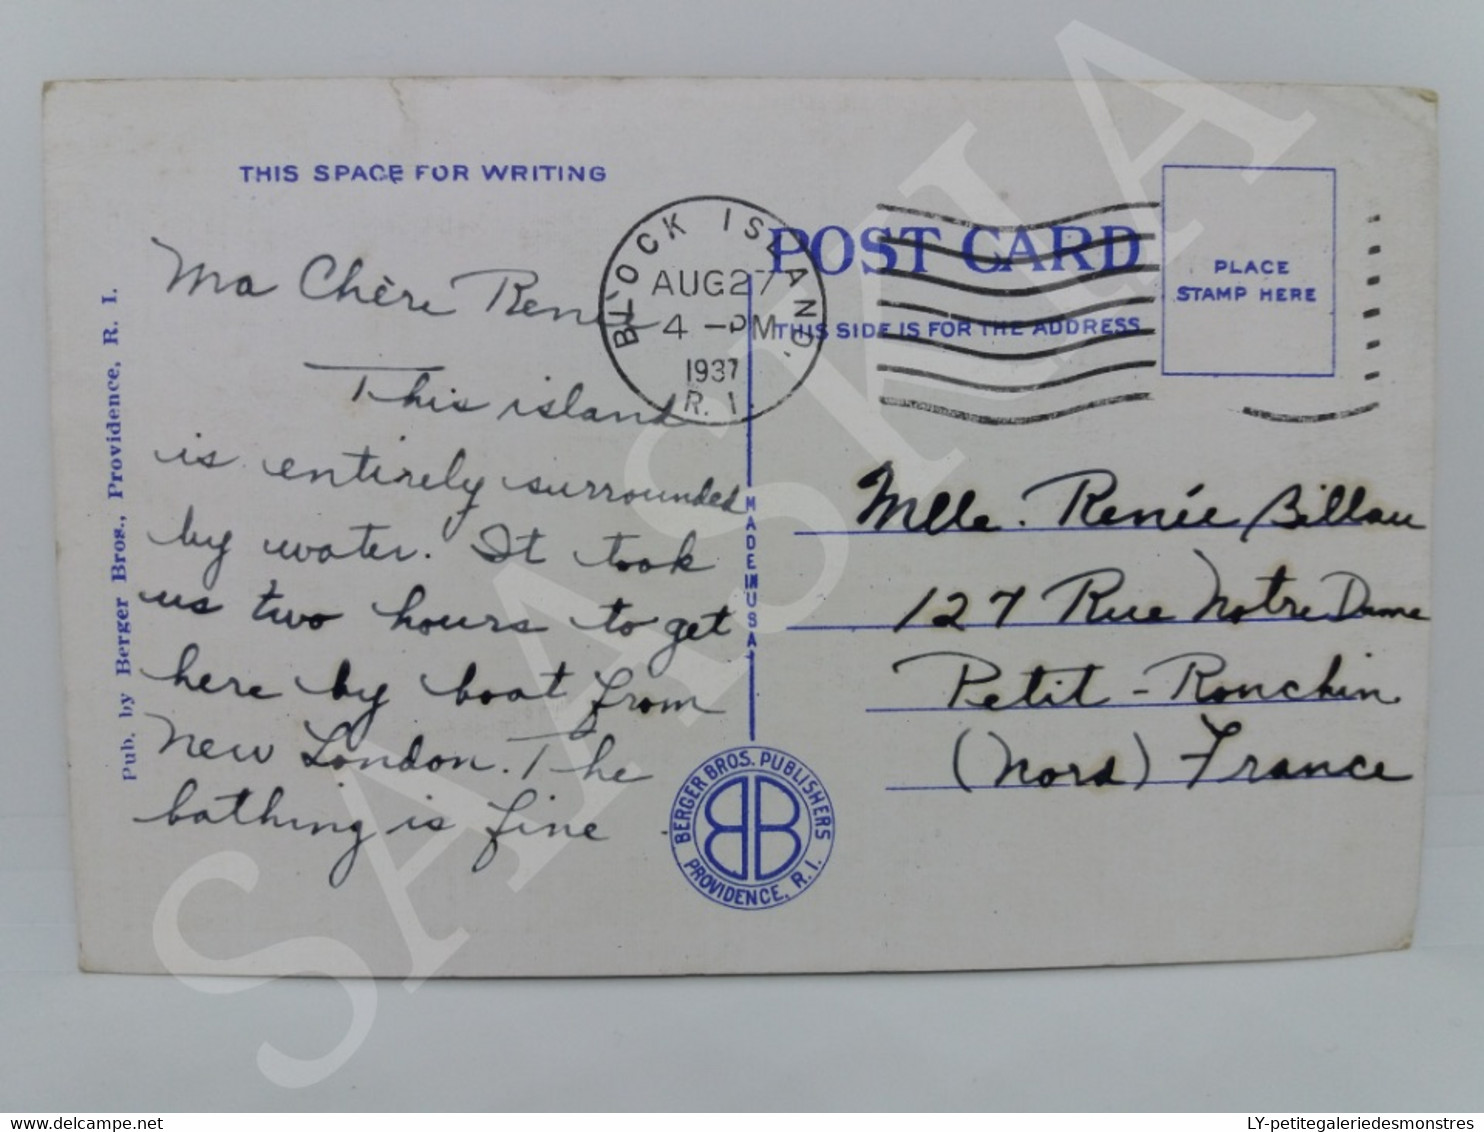 THIS SPACE FOR WRITING
Ma Chère Renée
This island
is entirely surrounded
by water. It took
us two hours to get
here by boat from
New London. The
bathing is fine
Pub. by Berger Bros., Providence, R. I.
BLOCK ISLAND,
AUG 27
4 - PM
1937
R. I.
POST CARD
THIS SIDE IS FOR THE ADDRESS
PLACE
STAMP HERE
MADE IN USA
Mlle. Renée Billau
127 Rue Notre Dame
Petit-Ronchin
(Nord) France
BERGER BROS. PUBLISHERS
BB
PROVIDENCE, R. I.
SAASKIA
www.delcampe.net
LY-petitegaleriedesmonstres